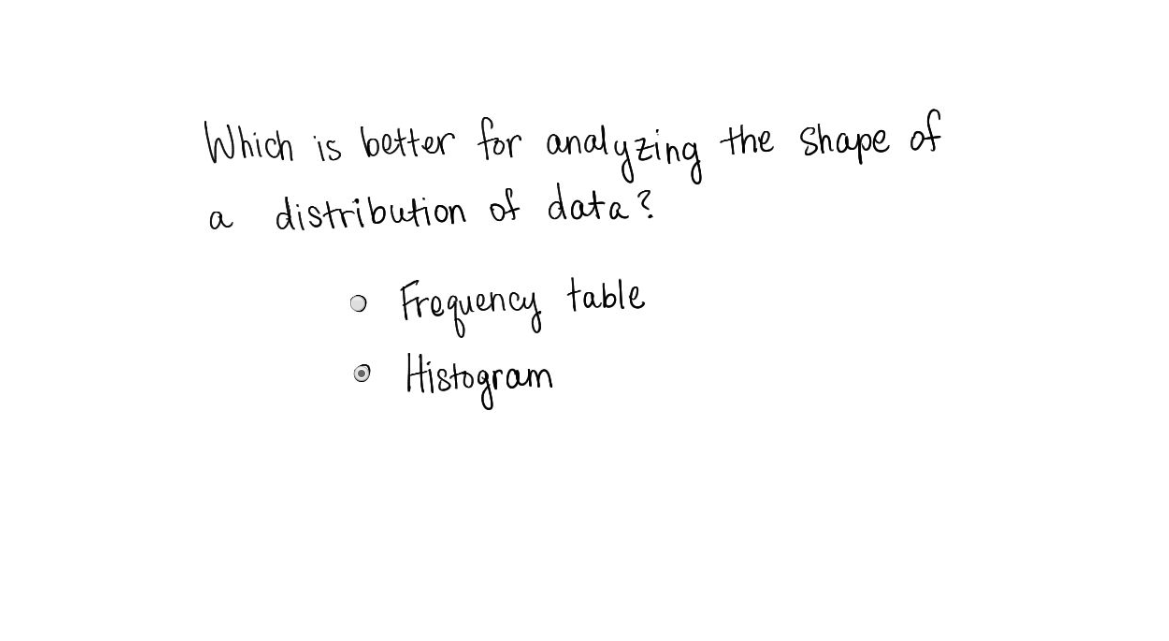 Which is better for analyzing the shape of
a distribution of data?
Frequency table
Histogram